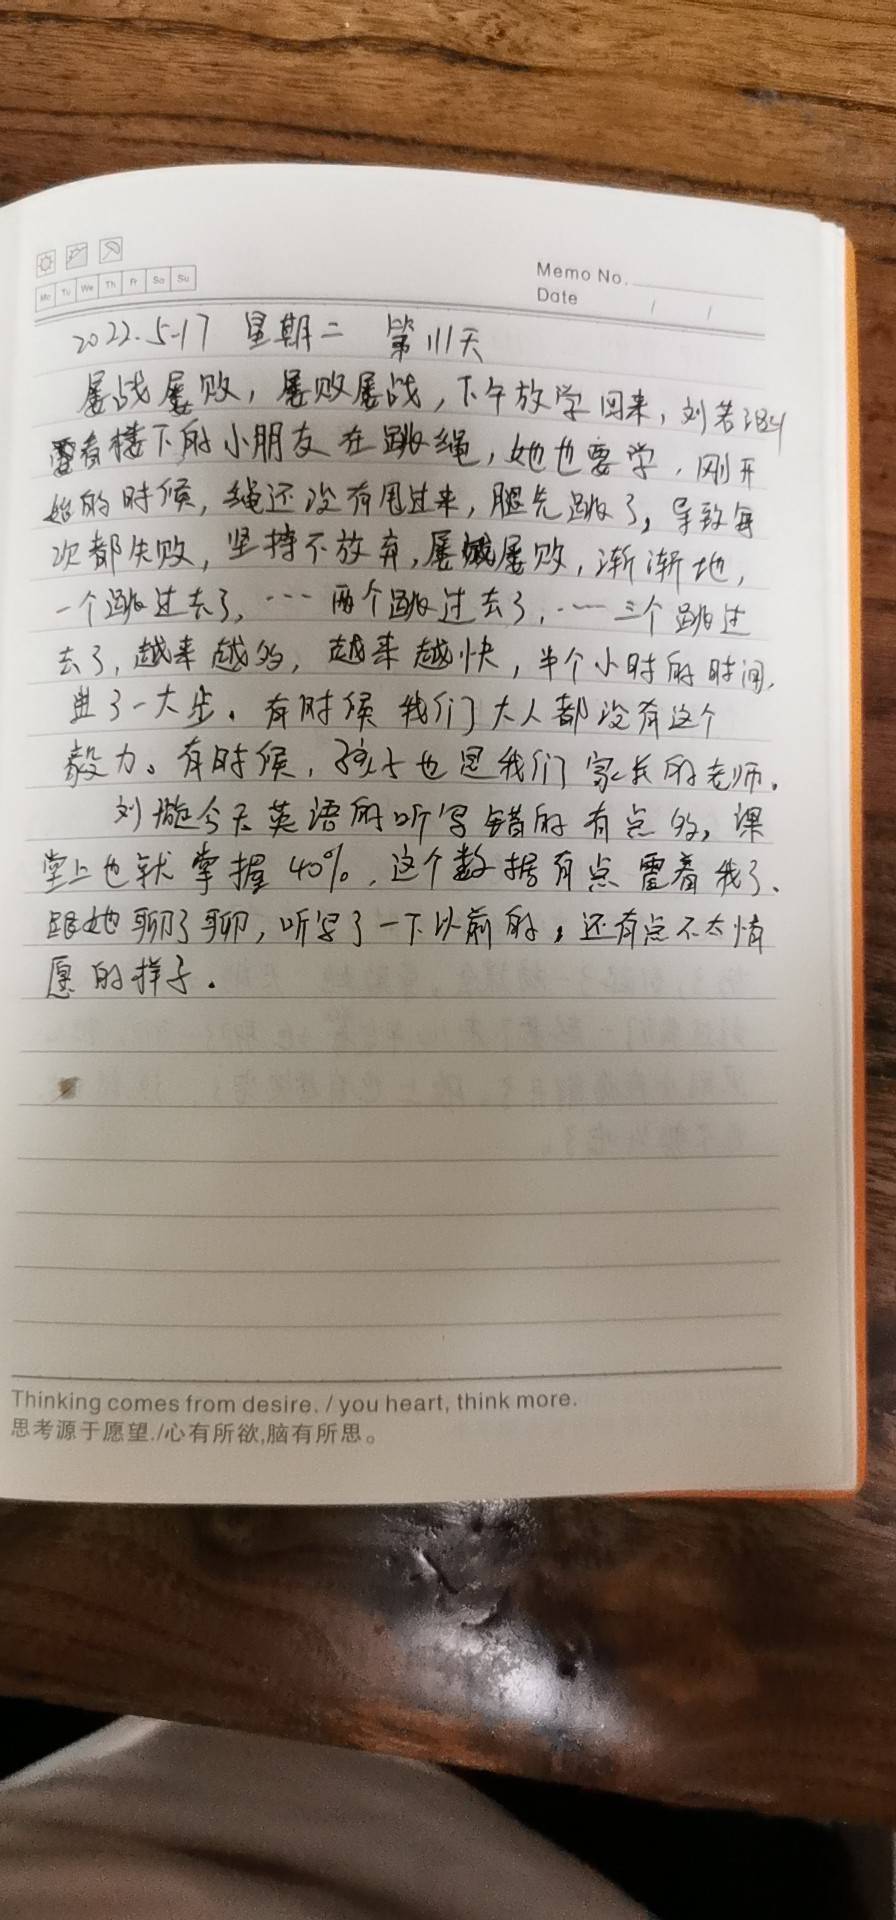 Memo No.
Mo Tu We Th Fr Sa Su
Date / /
2022.5.17 星期二 第111天
屡战屡败，屡败屡战，下午放学回来，刘若
看楼下的小朋友在跳绳，她也要学，刚开
始的时候，绳还没有甩过来，腿先跳了，导致每
次都失败，坚持不放弃，屡战屡败，渐渐地，
一个跳过去了，…… 两个跳过去了，…… 三个跳过
去了，越来越多，越来越快，半个小时的时间，
进了一大步。有时候我们大人都没有这个
毅力。有时候，孩子也是我们家长的老师。
刘 今天英语的听写错的有点多，课
堂上也就掌握40%，这个数据有点 着我了、
跟她聊了聊，听写了一下以前的，还有点不太情
愿的样子。
Thinking comes from desire. / you heart, think more.
思考源于愿望./心有所欲,脑有所思。